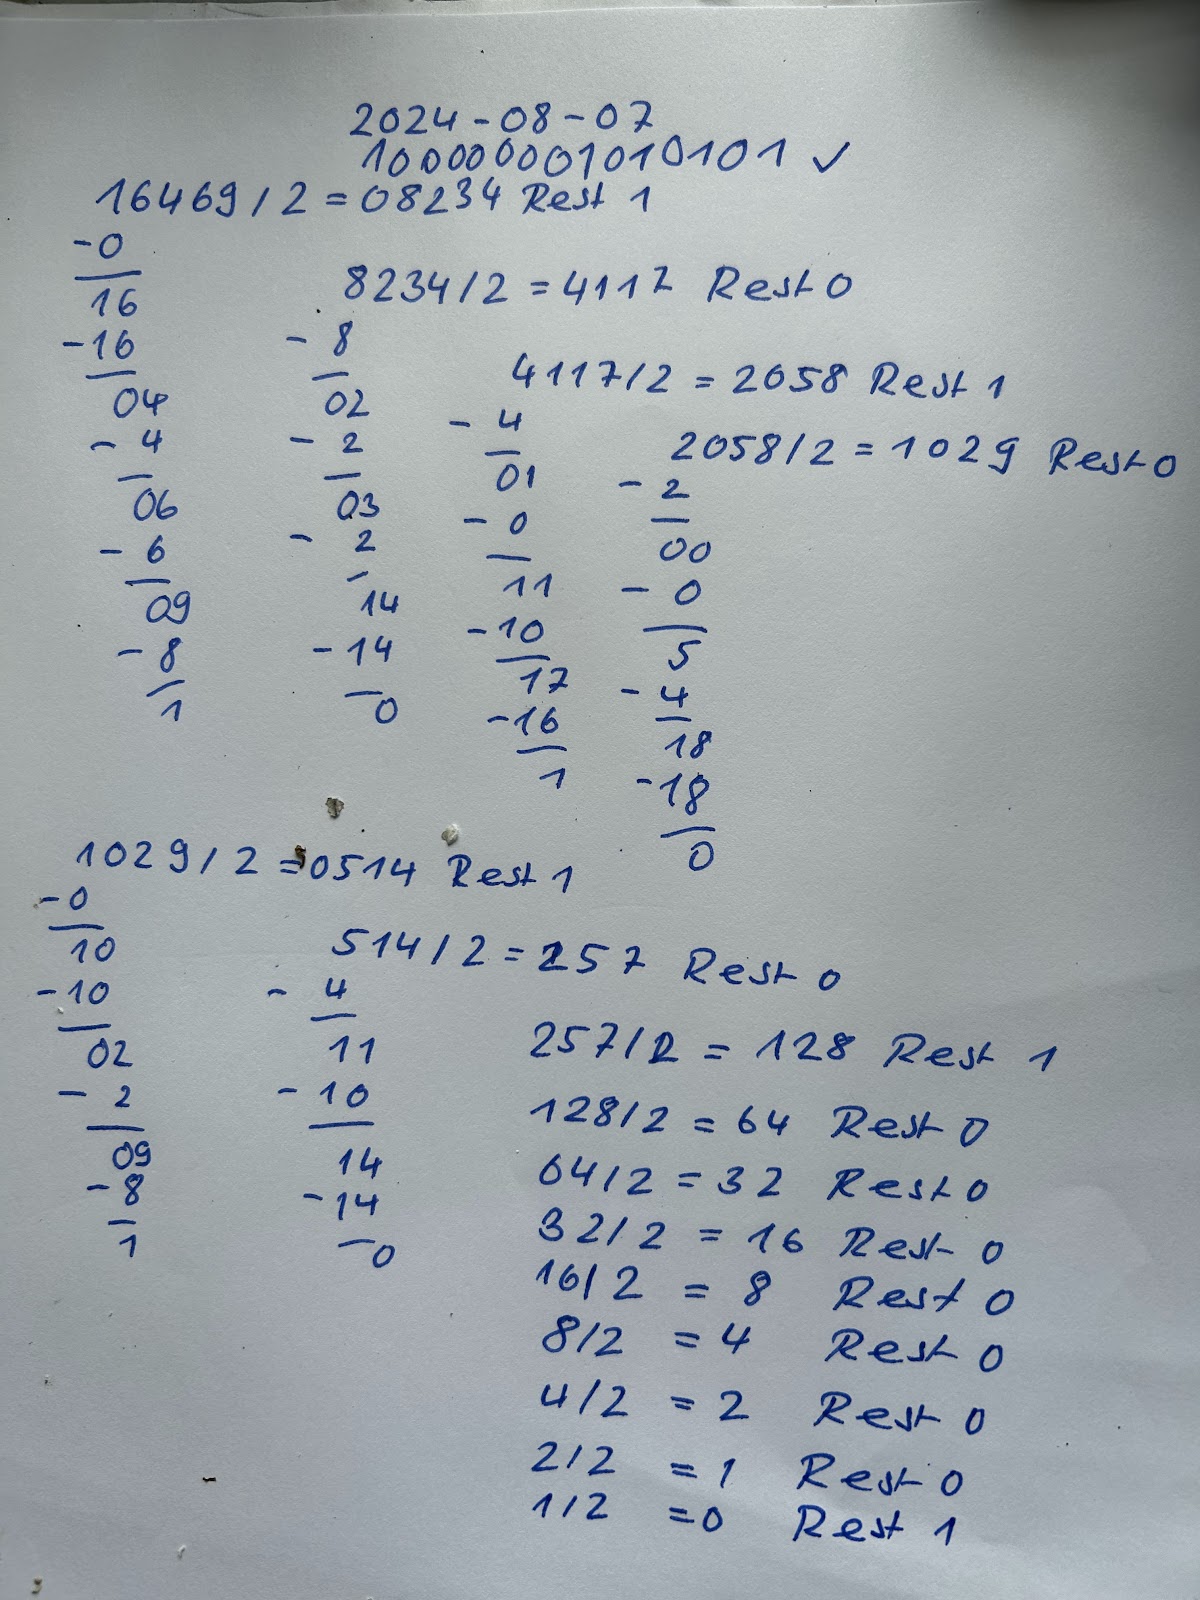 2024-08-07
100000001010101 ✓
16469/2=08234 Rest 1
-0
16
-16
04
-4
06
-6
09
-8
1
8234/2=4117 Rest 0
-8
02
-2
03
-2
14
-14
0
4117/2=2058 Rest 1
-4
01
-0
11
-10
17
-16
1
2058/2=1029 Rest 0
-2
00
-0
5
-4
18
-18
0
1029/2=0514 Rest 1
-0
10
-10
02
-2
09
-8
1
514/2=257 Rest 0
-4
11
-10
14
-14
0
257/2=128 Rest 1
128/2=64 Rest 0
64/2=32 Rest 0
32/2=16 Rest 0
16/2=8 Rest 0
8/2=4 Rest 0
4/2=2 Rest 0
2/2=1 Rest 0
1/2=0 Rest 1